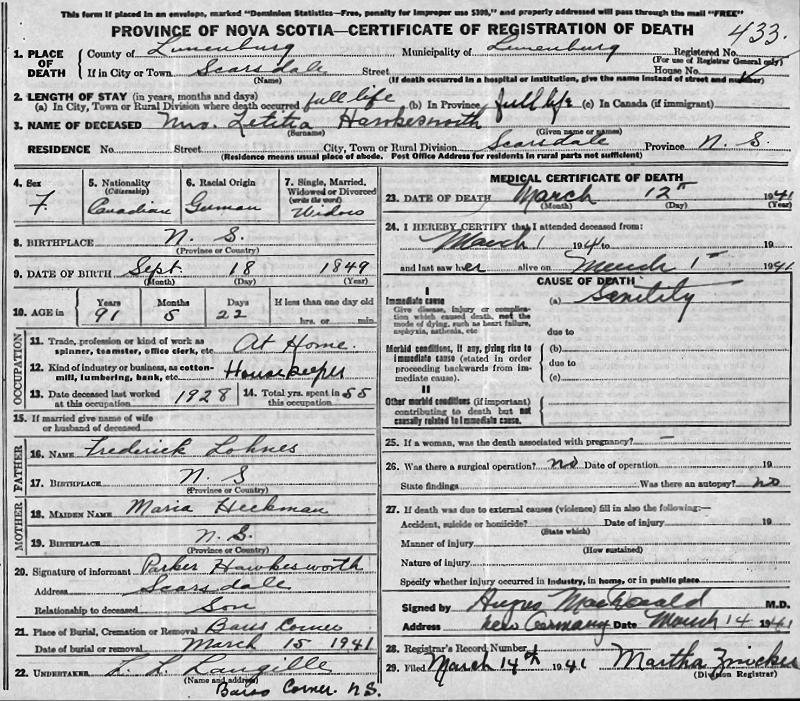 This form if placed in an envelope, marked "Dominion Statistics—Free, penalty for improper use $300," and properly addressed will pass through the mail "FREE"
PROVINCE OF NOVA SCOTIA—CERTIFICATE OF REGISTRATION OF DEATH 433.
1. PLACE OF DEATH County of Lunenburg Municipality of Lunenburg Registered No.
(For use of Registrar General only)
If in City or Town Scarsdale Street House No.
(Name) (If death occurred in a hospital or institution, give the name instead of street and number)
2. LENGTH OF STAY (in years, months and days)
(a) In City, Town or Rural Division where death occurred full life (b) In Province full life (c) In Canada (if immigrant)
3. NAME OF DECEASED Mrs. Letitia Hawkesworth
(Surname) (Given name or names)
RESIDENCE No. Street City, Town or Rural Division Scarsdale Province N. S.
(Residence means usual place of abode. Post Office Address for residents in rural parts not sufficient)
4. Sex F.
5. Nationality (Citizenship) Canadian
6. Racial Origin German
7. Single, Married, Widowed or Divorced (write the word) Widow
8. BIRTHPLACE N. S.
(Province or Country)
9. DATE OF BIRTH Sept. 18 1849
(Month) (Day) (Year)
10. AGE in Years Months Days If less than one day old
91 5 22 hrs. or min.
OCCUPATION
11. Trade, profession or kind of work as spinner, teamster, office clerk, etc. At Home.
12. Kind of industry or business, as cotton-mill, lumbering, bank, etc. Housekeeper
13. Date deceased last worked at this occupation 1928 14. Total yrs. spent in this occupation 55
15. If married give name of wife or husband of deceased
FATHER
16. NAME Frederick Lohnes
17. BIRTHPLACE N. S
(Province or Country)
MOTHER
18. MAIDEN NAME Maria Heckman
19. BIRTHPLACE N. S.
(Province or Country)
20. Signature of informant Parker Hawkesworth
Address Scarsdale
Relationship to deceased Son
21. Place of Burial, Cremation or Removal Barss Corner
Date of burial or removal March 15 1941
22. UNDERTAKER L. L. Langille
(Name and address)
Barss Corner. N.S.
MEDICAL CERTIFICATE OF DEATH
23. DATE OF DEATH March 12th 1941
(Month) (Day) (Year)
24. I HEREBY CERTIFY that I attended deceased from:
March 1 1941 to 19
and last saw her alive on March 1st 1941
CAUSE OF DEATH
I
Immediate cause (a) Senility
Give disease, injury or complication which caused death, not the mode of dying, such as heart failure, asphyxia, asthenia, etc
due to
Morbid conditions, if any, giving rise to immediate cause (stated in order proceeding backwards from immediate cause).
(b)
due to
(c)
II
Other morbid conditions (if important) contributing to death but not causally related to immediate cause.
25. If a woman, was the death associated with pregnancy? —
26. Was there a surgical operation? no Date of operation 19
State findings Was there an autopsy? no
27. If death was due to external causes (violence) fill in also the following:—
Accident, suicide or homicide? Date of injury 19
(State which)
Manner of injury
(How sustained)
Nature of injury
Specify whether injury occurred in industry, in home, or in public place
Signed by Angus MacDonald M.D.
Address New Germany Date March 14 1941
28. Registrar's Record Number
29. Filed March 14th 1941 Martha Zwicker
(Division Registrar)